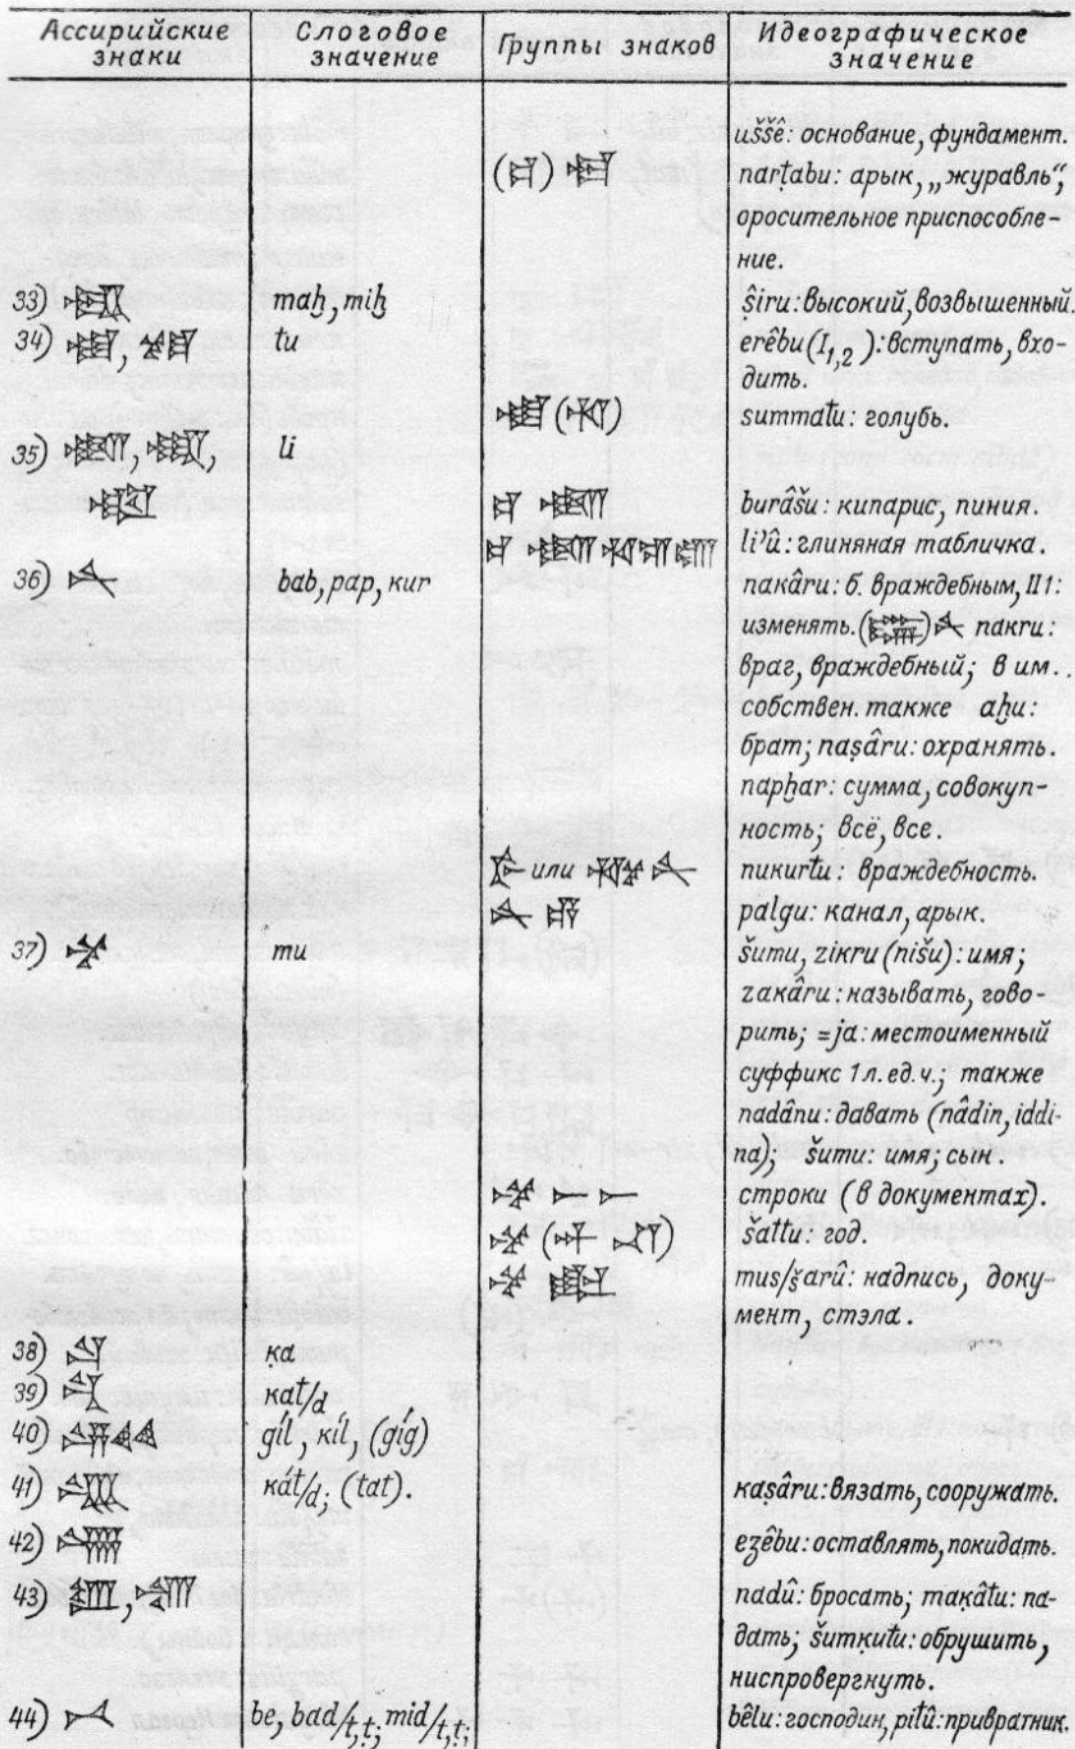 Ассирийские знаки Слоговое значение Группы знаков Идеографическое значение
uššê: основание, фундамент.
(𒄑) 𒀳 narṭabu: арык, „журавль“,
оросительное приспособле-
ние.
33) 𒈤 maḫ, miḫ ṣîru: высокий, возвышенный.
34) 𒌅 tu erêbu (I1,2): вступать, вхо-
дить.
summatu: голубь.
35) 𒇷 li
burâšu: кипарис, пиния.
li’û: глиняная табличка.
36) 𒉽 bab, pap, kur nakâru: б. враждебным, II1:
изменять. nakru:
враг, враждебный; в им.
собствен. также aḫu:
брат; naṣâru: охранять.
napḫar: сумма, совокуп-
ность; всё, все.
или nukurtu: враждебность.
palgu: канал, арык.
37) 𒈬 mu šumu, zikru (nišu): имя;
zakâru: называть, гово-
рить; =ja: местоименный
суффикс 1 л. ед. ч.; также
nadânu: давать (nâdin, iddi-
na); šumu: имя; сын.
строки (в документах).
šattu: год.
mus/šarû: надпись, доку-
мент, стэла.
38) 𒋡 ḳa
39) 𒃰 kat/d
40) 𒄃 gíl, kíl, (gíg)
41) kát/d; (tat). kaṣâru: вязать, сооружать.
42) ezêbu: оставлять, покидать.
43) nadû: бросать; maḳâtu: па-
дать; šumḳutu: обрушить,
ниспровергнуть.
44) 𒁁 be, bad/t,ṭ; mid/t,ṭ; bêlu: господин, pitû: привратник.